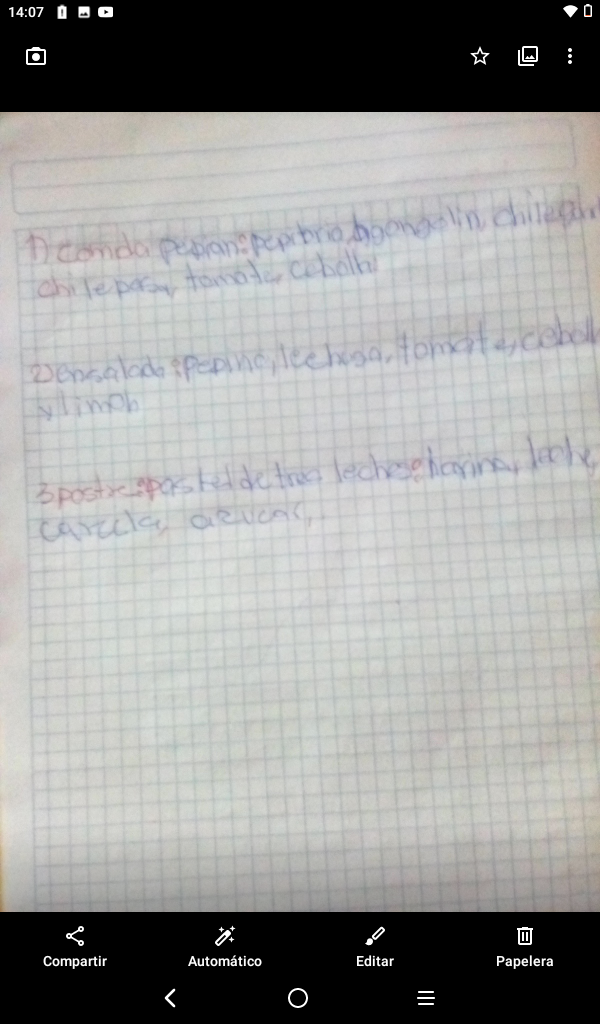 14:07
1) comida pepian: ajongolin, chile
chile pasa, tomate, cebolla
2) ensalada: pepino, lechuga, tomate, ceboll
y limon
3 postre: pastel de tres leches: harina, leche,
canela, azucar,
Compartir Automático Editar Papelera